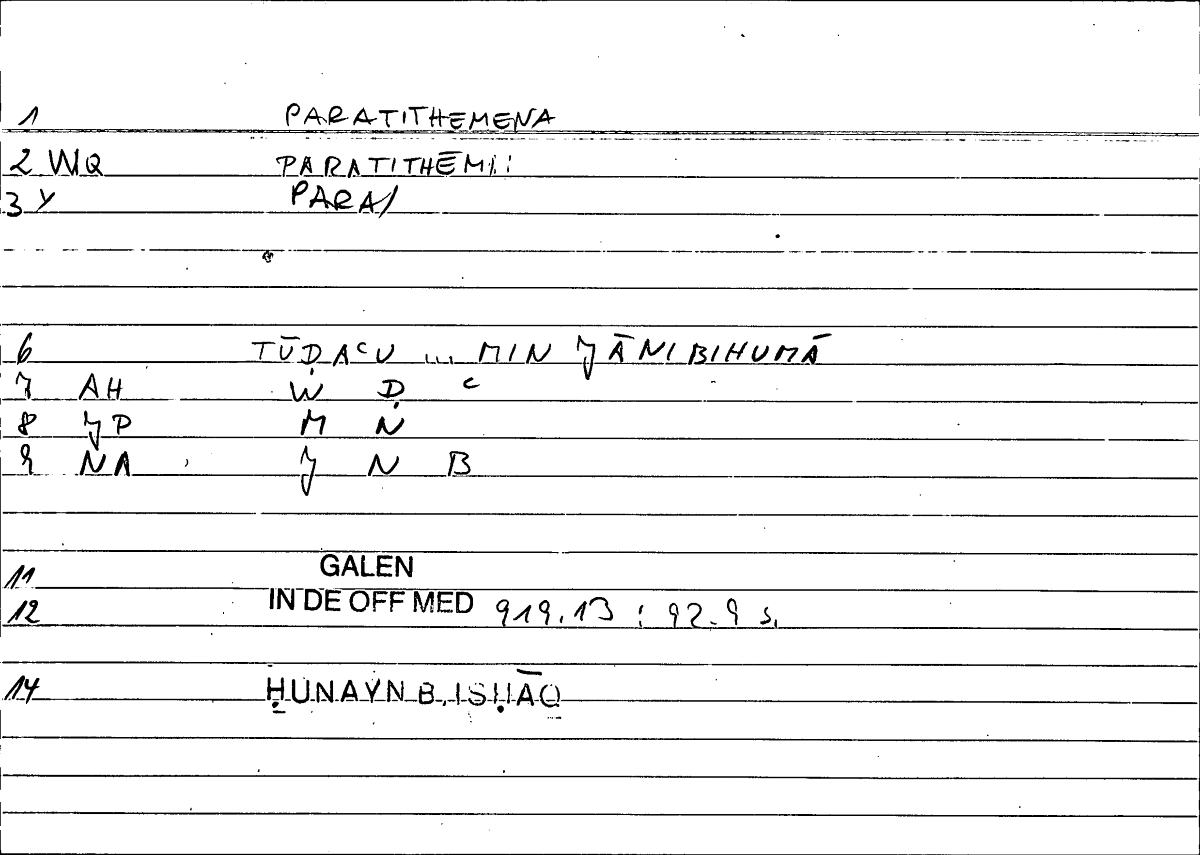 1 PARATITHEMENA
2 WQ PARATITHĒMI:
3 Y PARA/
6 TŪḌAʿU ... MIN JĀNIBIHUMĀ
7 AH W Ḍ ʿ
8 JP M N
9 NA J N B
11 GALEN
12 IN DE OFF MED 919.13 : 92.9 s.
14 ḤUNAYN B. ISḤĀQ